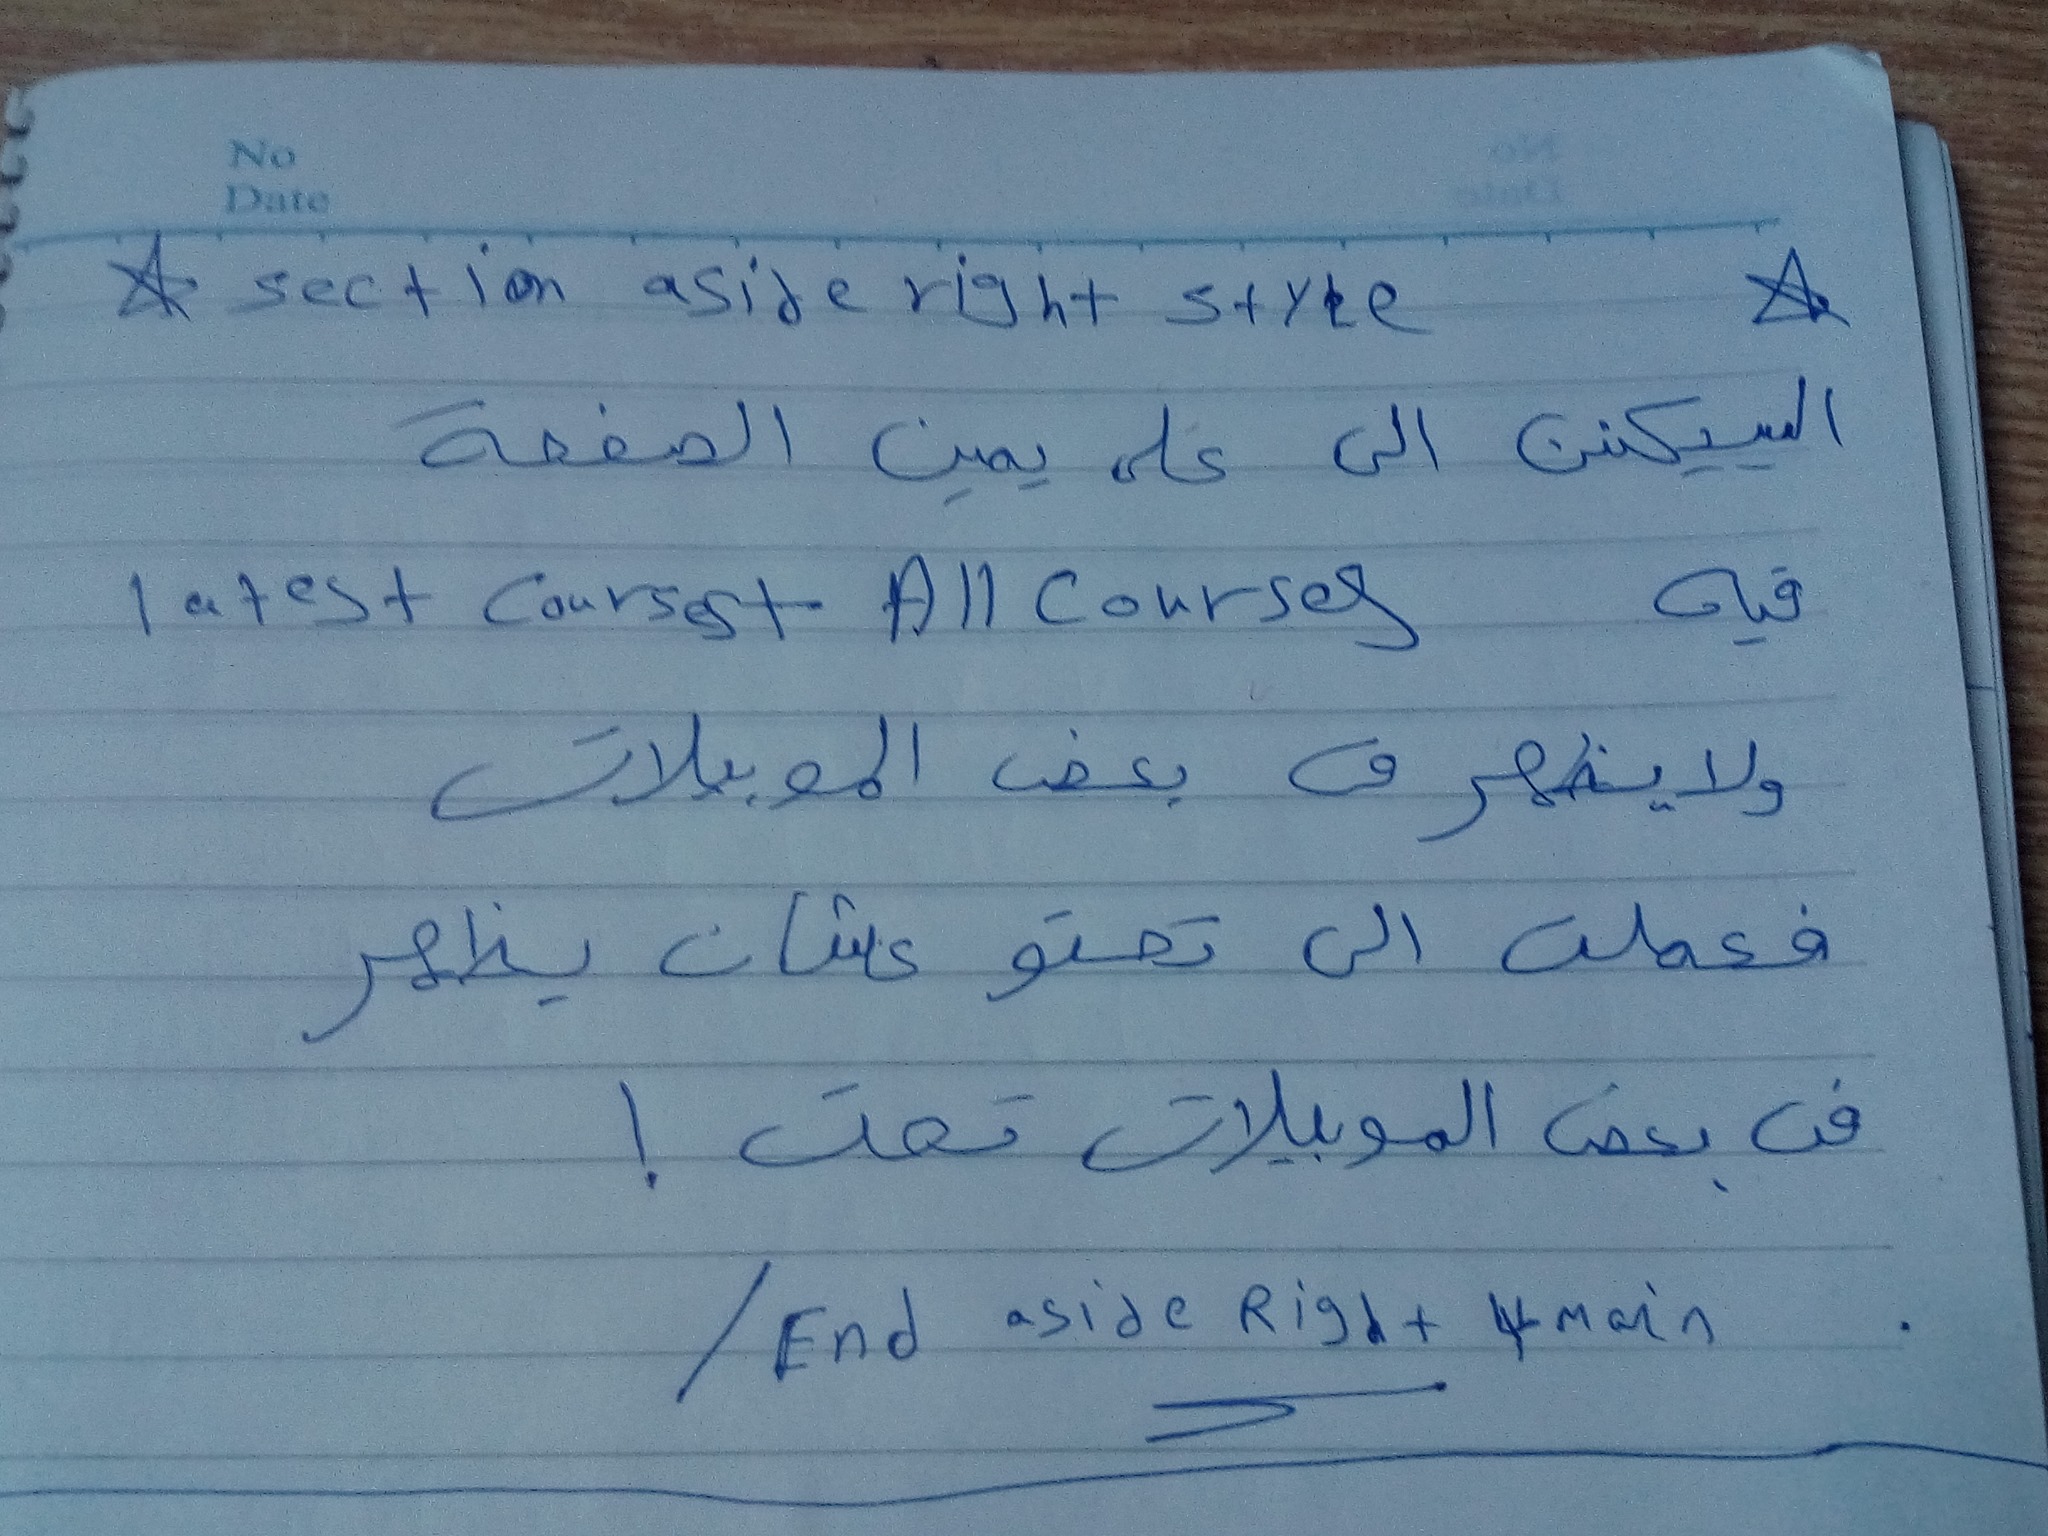 No
Date
☆ section aside right style ☆
السيكنن الى على يمين الصفحة
فيه latest Courses + All Courses
ولا يظهر ف بعض الموبيلات
فعملت الى تحتو عشان يظهر
فى بعض الموبيلات تحت !
/End aside Right & main .